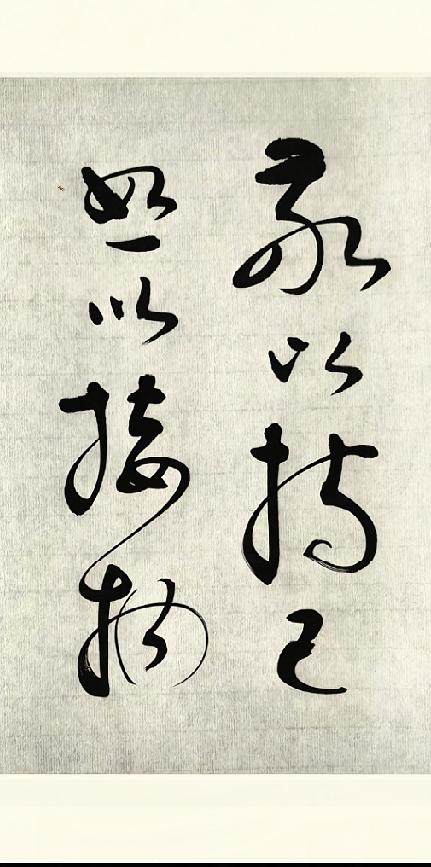 敬以持己
恕以接物